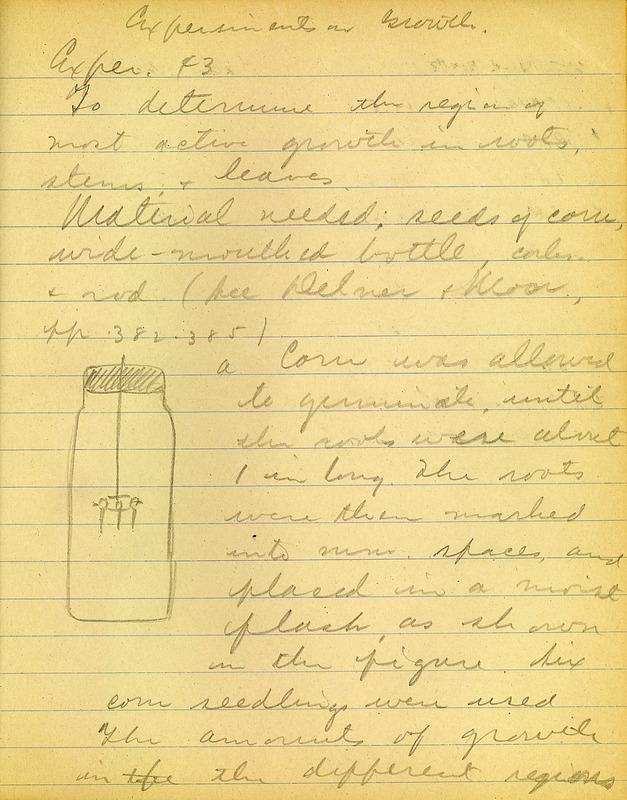 Experiments on Growth.
Exper. 43
To determine the region of
most active growth in roots,
stems, + leaves.
Material needed; seeds of corn,
wide-mouthed bottle, corks
+ rod (See + Moor,
pp. 382-385)
a Corn was allowed
to germinate, until
the roots were about
1 in long. The roots
were then marked
into mm. spaces, and
placed in a moist
flask, as shown
in the figure. Six
corn seedlings were used
The amounts of growth
in the the different regions